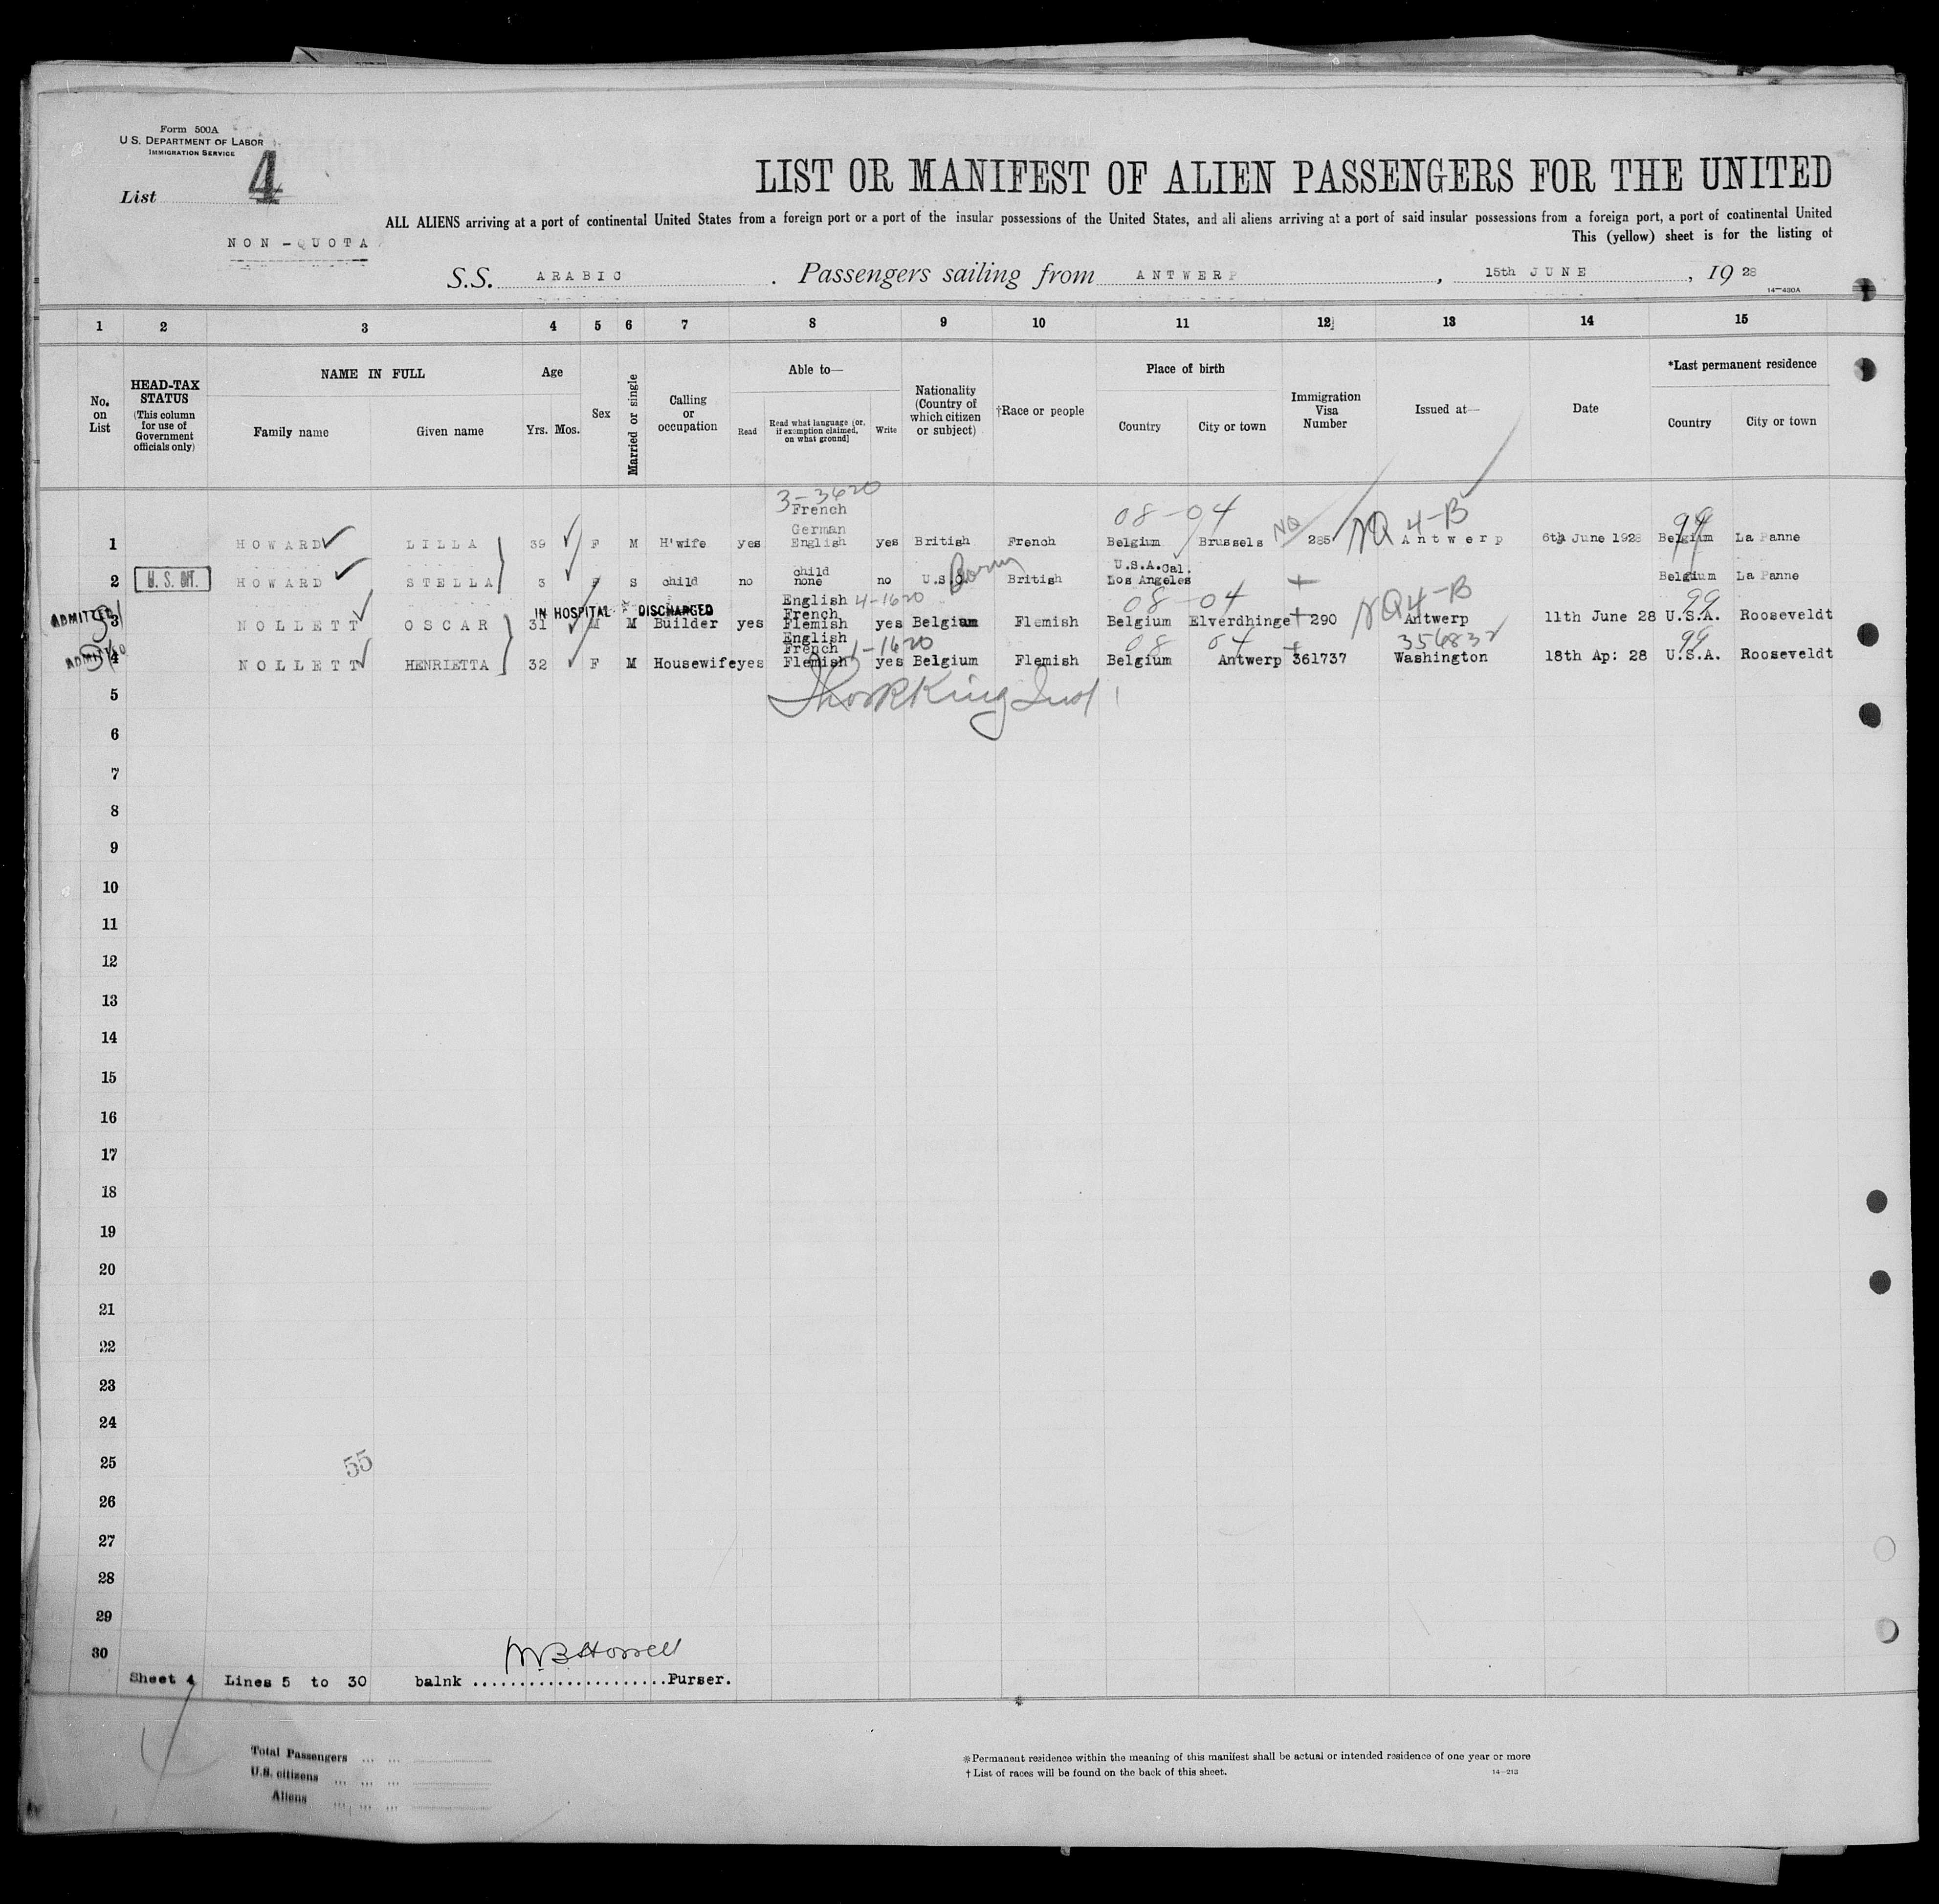 Form 500A
U. S. DEPARTMENT OF LABOR
IMMIGRATION SERVICE
List 4
NON-QUOTA
LIST OR MANIFEST OF ALIEN PASSENGERS FOR THE UNITED
ALL ALIENS arriving at a port of continental United States from a foreign port or a port of the insular possessions of the United States, and all aliens arriving at a port of said insular possessions from a foreign port, a port of continental United
This (yellow) sheet is for the listing of
S.S. ARABIC . Passengers sailing from ANTWERP , 15th JUNE , 19 28
14—430A
1 2 3 4 5 6 7 8 9 10 11 12 13 14 15
No. on List
HEAD-TAX STATUS (This column for use of Government officials only)
NAME IN FULL
Family name Given name
Age
Yrs. Mos.
Sex
Married or single
Calling or occupation
Able to—
Read Read what language [or, if exemption claimed, on what ground] Write
Nationality (Country of which citizen or subject)
†Race or people
Place of birth
Country City or town
Immigration Visa Number
Issued at—
Date
*Last permanent residence
Country City or town
3-3620 08-04 NQ NQ 4-B 99
1 HOWARD LILLA 39 F M H'wife yes French German English yes British French Belgium Brussels 285 Antwerp 6th June 1928 Belgium La Panne
2 U.S. CIT. HOWARD STELLA 3 F S child no child none no U.S.C. Born British U.S.A. Cal. Los Angeles Belgium La Panne
IN HOSPITAL DISCHARGED 4-1620 08-04 NQ 4-B 99
ADMITTED 3 NOLLETT OSCAR 31 M M Builder yes English French Flemish yes Belgium Flemish Belgium Elverdhinge 290 Antwerp 11th June 28 U.S.A. Rooseveldt
1-1620 08 04 356832 99
ADMITTED 4 NOLLETT HENRIETTA 32 F M Housewife yes English French Flemish yes Belgium Flemish Belgium Antwerp 361737 Washington 18th Ap: 28 U.S.A. Rooseveldt
5
6
7
8
9
10
11
12
13
14
15
16
17
18
19
20
21
22
23
24
25
55
26
27
28
29
30
Sheet 4 Lines 5 to 30 balnk .....................Purser.
Total Passengers
U.S. citizens
Aliens
*Permanent residence within the meaning of this manifest shall be actual or intended residence of one year or more
† List of races will be found on the back of this sheet.
14—213